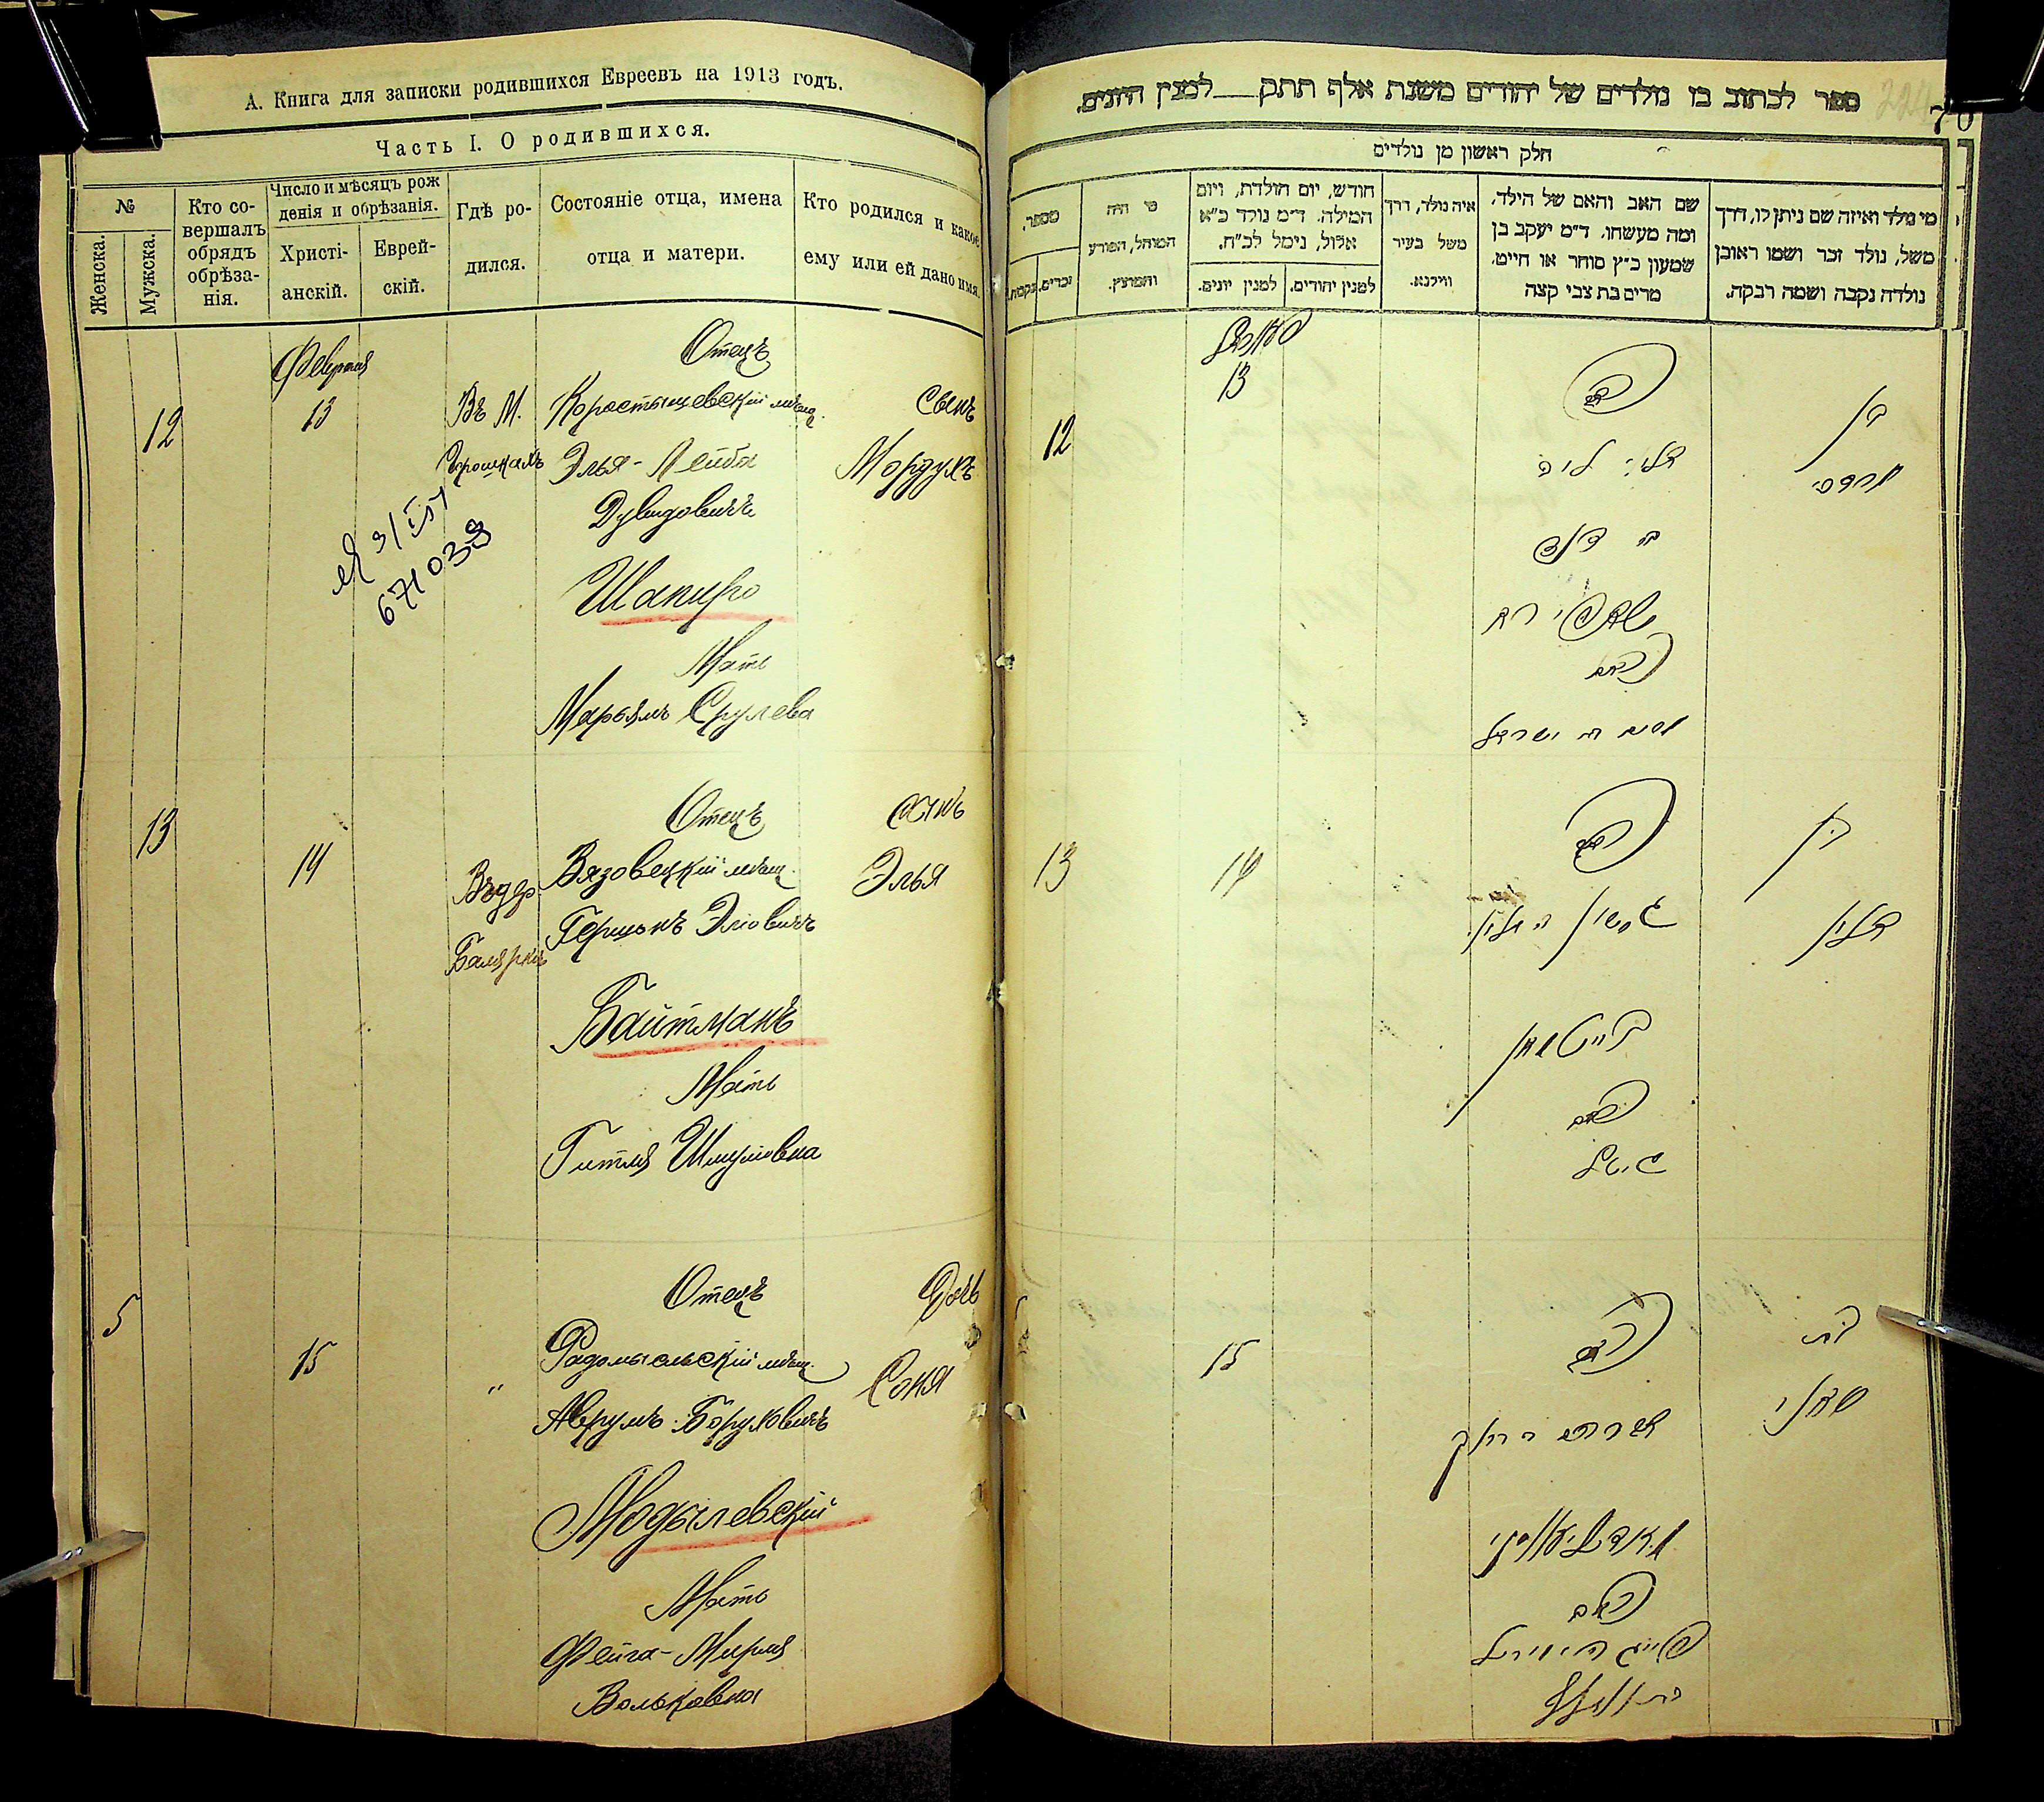 А. Книга для записки родившихся Евреевъ на 1913 годъ.
Часть I. О родившихся.
№
Женска.
Мужска.
Кто со-
вершалъ
обрядъ
обрѣза-
нія.
Число и мѣсяцъ рож
денія и обрѣзанія.
Христі-
анскій.
Еврей-
скій.
Гдѣ ро-
дился.
Состояніе отца, имена
отца и матери.
Кто родился и какое
ему или ей дано имя.
12
Февраля
13
Въ М.
Отецъ
Коростышевскій мѣщ.
Элья-Лейба
Дувидовичъ
Шапиро
Мать
Марьямъ Срулева
Сынъ
Мордухъ
671039
13
14
Въ дер.
Отецъ
Вязовецкій мѣщ.
Гершонъ Эліовичъ
Байтманъ
Мать
Гитля Шмуловна
Сынъ
Элья
5
15
"
Отецъ
Радомысльскій мѣщ.
Аврумъ Боруховичъ
Модылевскій
Мать
Фейга-Мирля
Вольковна
Дочь
Соня
70
ספר לכתוב בו נולדים של יהודים משנת אלף תתק__למנין היונים.
חלק ראשון מן נולדים
מי נולד ואיזה שם ניתן לו, דרך
משל, נולד זכר ושמו ראובן
נולדה נקבה ושמה רבקה.
שם האב והאם של הילד,
ומה מעשהו. ד״מ יעקב בן
שמעון כ״ץ סוחר או חייט.
מרים בת צבי קצה
איה נולד, דרך
משל בעיר
ווילנא.
חודש, יום הולדת, ויום
המילה. ד״מ נולד כ״א
אלול, נימל לכ״ח.
למנין יהודים.
למנין יונים.
מי היה
המוהל, הפורע
והמוצץ.
מספר,
זכרים.
נקבות.
12
13
האב
בן
מרדכי
שאפירא
האם
13
14
האב
בן
בייטמאן
האם
גיטל
15
האב
בת
האם